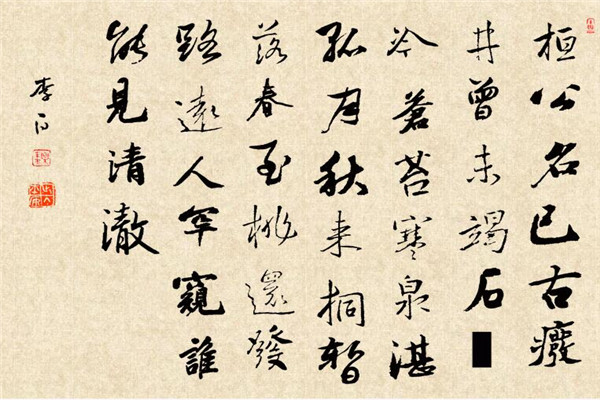 桓公名已古癈
井曾未竭石
冷蒼苔寒泉湛
孤月秋来桐暫
落春至桃還發
路遠人罕窺誰
能見清澈
李白